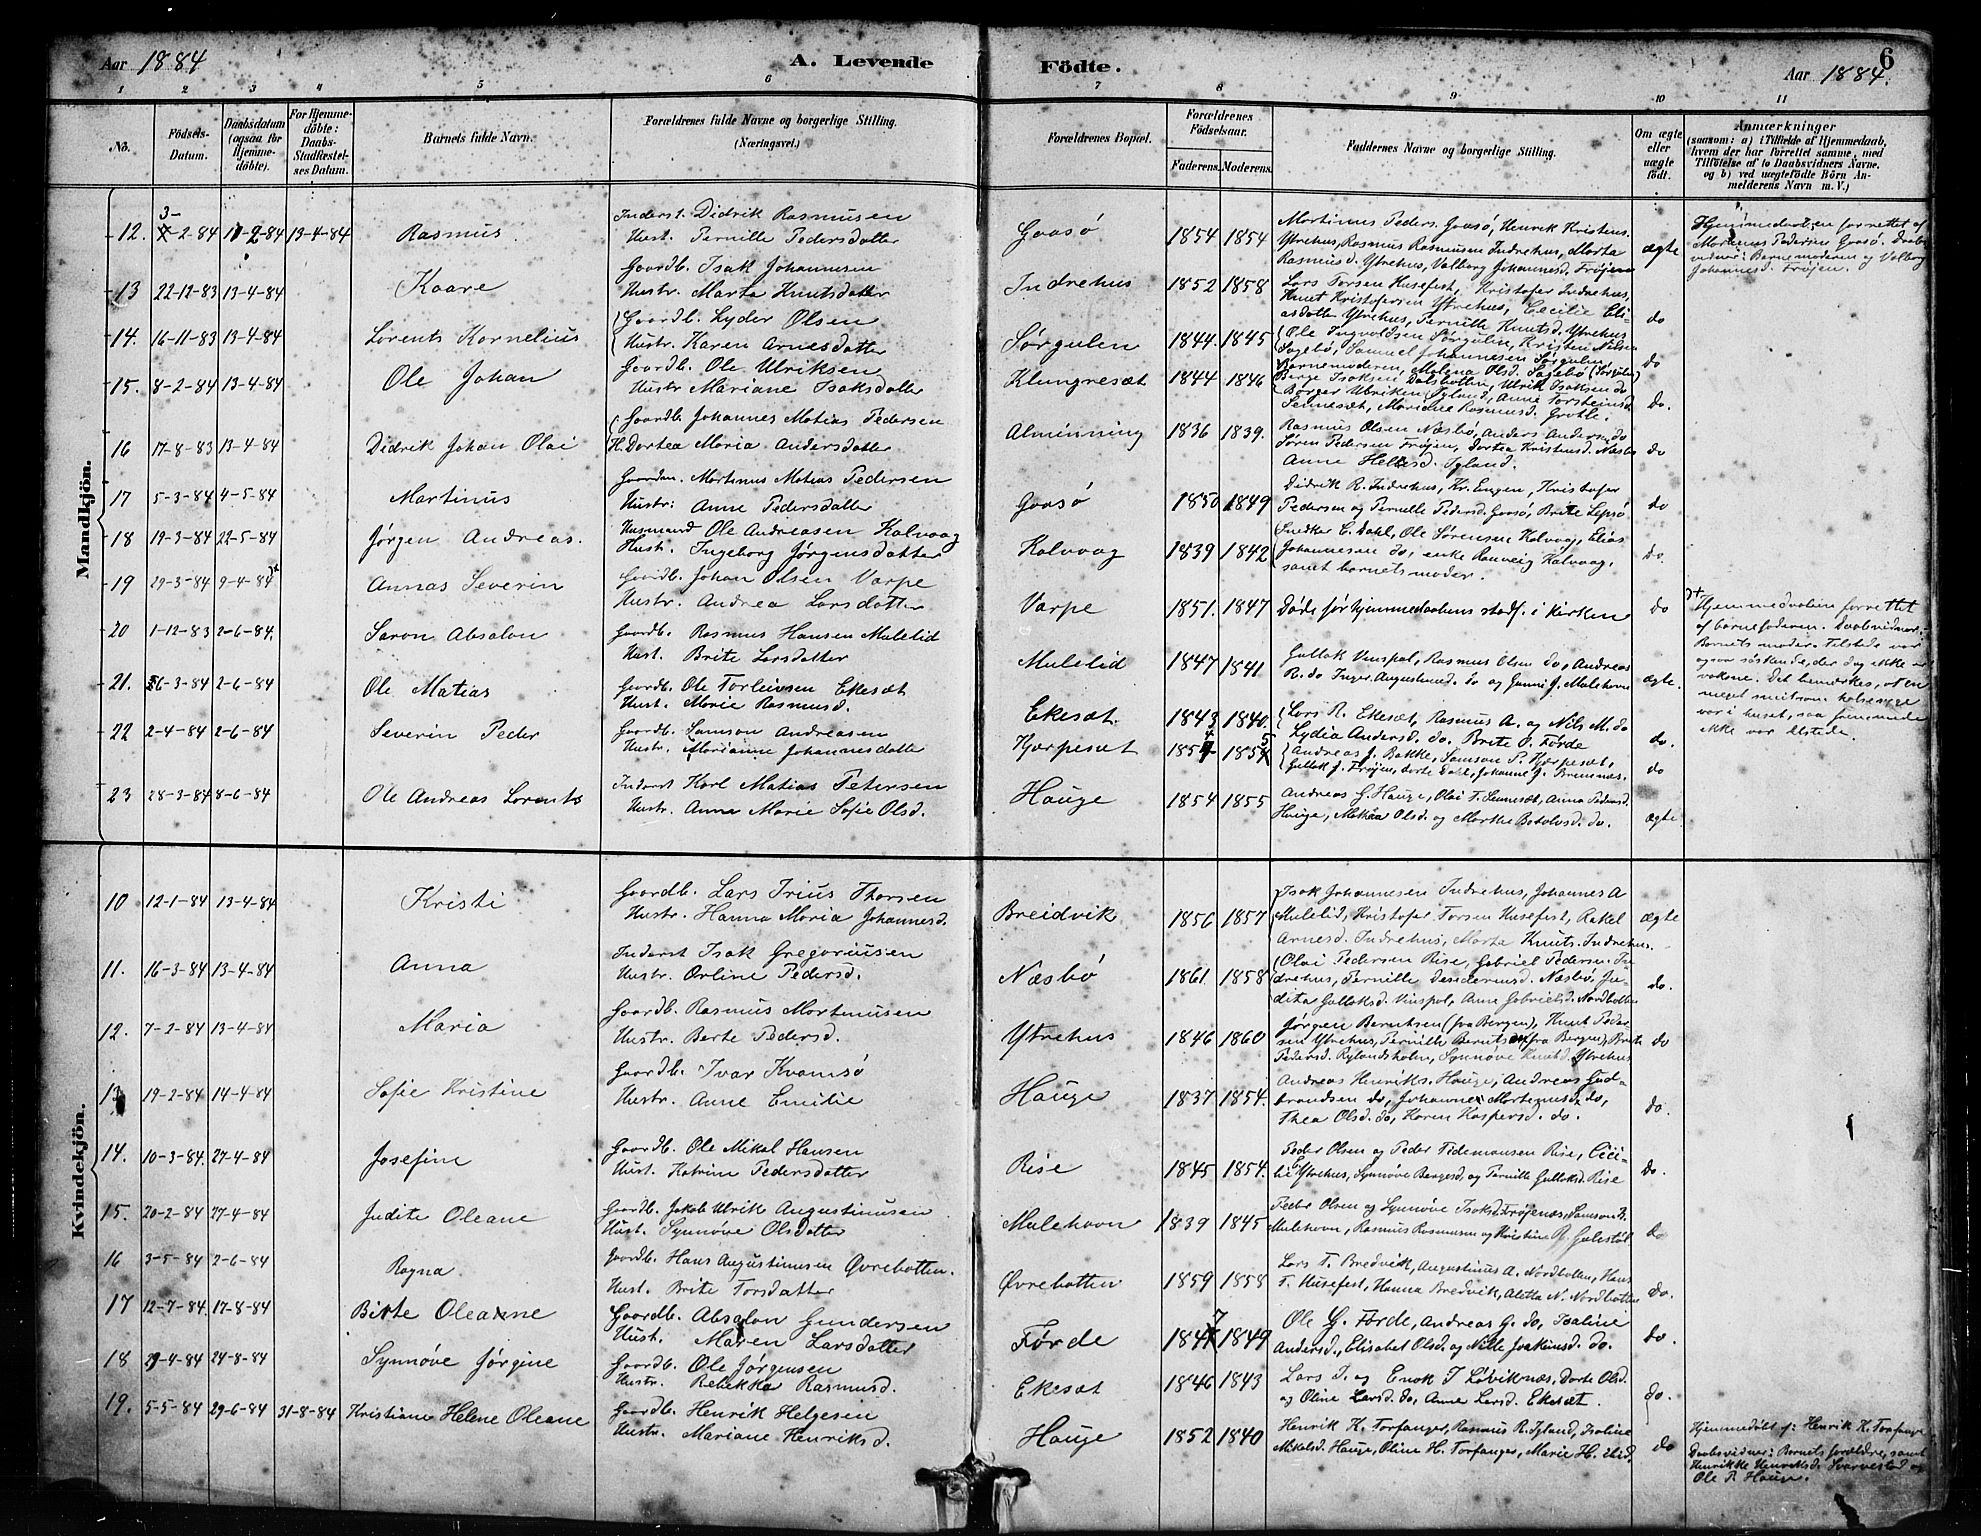 Aar 1884 A. Levende Födte. Aar 1884. 6
1 2 3 4 5 6 7 8 9 10 11
No. Födsels-Datum. Daabsdatum (ogsaa for Hjemmedöbte). For Hjemmedöbte: Daabs-Stadfæstelses Datum. Barnets fulde Navn. Forældrenes fulde Navne og borgerlige Stilling. (Næringsvei.) Forældrenes Bopæl. Forældrenes Födselsaar. Faderens. Moderens. Faddernes Navne og borgerlige Stilling. Om ægte eller uægte födt. Anmærkninger (saasom: a) i Tilfælde af Hjemmedaab, hvem der har forrettet samme, med Tilföielse af to Daabsvidners Navne. og b) ved uægtefödte Börn Anmelderens Navn m. V.)
Mandkjön.
12. 3-2-84 11-2-84 13-4-84 Rasmus. Inderst. Didrik Rasmusen
Hust. Pernille Pedersdatter Gaasø 1854 1854 Martinus Peders. Gaasø, Henrik Kristens.
Ytrehus, Rasmus Rasmusen Indrehus, Marta
Rasmusd. Ytrehus, Valborg Johannesd. Frøjen ægte
Hjemmedaaben forrettet af
Martinus Pedersen Gaasø. Daabs
vidner: Barnemoderen og Valborg
Johannesd. Frøjen.
13 22-12-83 13-4-84 Kaare Gaardb. Isak Johannesen
Hustr. Marta Knutsdatter Indrehus 1852 1858 Lars Torsen Husefest, Kristofer Indrehus,
Knut Kristofersen Ytrehus, Cecilie Eli-
asdotter Ytrehus, Pernille Knutsd. Ytrehus do
14. 16-11-83 13-4-84 Lorents Kornelius Gaardb. Lyder Olsen
Hustr. Karen Arnesdatter Sørgulen 1844. 1845 Ole Ingvoldsen Sørgulen, Kristen Nilsen
Sagebø, Samuel Johannesen Sørgulen,
Barnemoderen, Malena Olsd. Sagebø (Sørgulen) do
15. 8-2-84 13-4-84 Ole Johan Gaardb. Ole Ulriksen
Hustr Mariane Isaksdatter Klungresæt 1844 1846 Berge Isaksen Dalsbotten, Ulrik Isaksen do
Børger Ulriken Igland, Anne Torsteinsd.
Sennesæt, Mariane Rasmusd. Grotle. do.
16 17-8-83 13-4-84 Didrik Johan Olai Gaardb. Johannes Matias Pedersen
H. Dortea Maria Andersdatter Alminning 1836 1839. Rasmus Olsen Næsbø, Anders Andersen do
Søren Pedersen Frøjen, Dortea Kristensd. Næsbø
Anne Helsesd. Igland. do
17 5-3-84 4-5-84 Martinus Gaardm. Martinus Matias Pedersen
Hustr: Anne Pedersdatter Gaasø 1850 1849 Didrik R. Indrehus, Kr. Engen, Kristofer
Pedersen og Pernille Pedersd. Gaasø, Brite Lepsø do
18 19-3-84 22-5-84 Jørgen Andreas. Husmand Ole Andreasen Kalvaag
Hust. Ingeborg Jørgensdatter Kalvaag 1839 1842 Snedker E. Dahl, Ole Sørensen Kalvaag, Elias
Johannesen do, enke Ranveig Kalvaag,
samt barnets moder. do.
19 29-3-84 9-4-84 Annas Severin Gaardb. Johan Olsen Varpe
Hustr. Andrea Larsdatter Varpe 1851. 1847 Døde før hjemmedaabens stadf. i kirken do
Hjemmedaaben forrettet
af barnefaderen. Daabsvidner:
Barnets moder. Tilstede var
ogsaa søskende, der dog ikke er
voksne. Det bemærkes, at en
meget smitsom halssyge
var i huset, saa fremmede
ikke var tilstede.
20 1-12-83 2-6-84. Saron Absalon Gaardb. Rasmus Hansen Mulelid
Hust. Brite Larsdatter Mulelid 1847 1841 Gullak Vinspol, Rasmus Olsen do, Andreas
R. do Inger Augustinusd. do og Gunni J. Mulehovn ægte.
21. 26-3-84 2-6-84 Ole Matias Gaardb. Ole Torleivsen Ekesæt
Hust. Marie Rasmusd. Ekesæt. 1843 1840. Lars R. Ekesæt, Rasmus A. og Nils M. do
Lydia Andersd. do. Brite O. Førde do.
22 2-4-84 2-6-84 Severin Peder Gaardb. Samson Andreasen
Hustr. Marianne Johannesdatter Hjerpesæt 1854 1855 Andreas J. Bakke, Samson P. Hjerpesæt,
Gullok J. Frøjen, Dorte Dale, Johanne J. Bremnæs. do
23 28-3-84 8-6-84 Ole Andreas Lorents Inderst Karl Matias Petersen
Hustr. Anna Marie Sofie Olsd. Hauge 1854 1855 Andreas G. Hauge, Olai T. Sennesæt, Anna Pedersd.
Hauge, Mekaa Olsd. og Marthe Botolvsd. do. ægte.
Kvindekjön.
10 12-1-84 13-4-84 Kristi Gaardb. Lars Trius Thorsen
Hustr. Hanna Maria Johannesd. Breidvik 1856 1857 Isak Johannesen Indrehus, Johannes A
Mulelid, Kristofer Torsen Husefest, Rakel
Arnesd. Indrehus, Marta Knuts. Indrehus. ægte
11. 16-3-84 13-4-84 Anna Inderst Isak Gregoriusen
Hustr. Orline Pedersd. Næsbø 1861. 1858 Olai Pedersen Rise, Gabriel Pedersen In-
drehus, Pernille Desideriusd. Næsbø, Ju-
dita Gulloksd. Vinspol, Anne Gabrielsd. Nordbotten do.
12. 7-2-84 13-4-84 Maria Gaardb. Rasmus Mortinusen
Hustr. Berte Pedersd. Ytrehus 1846 1860 Jørgen Berntsen (fra Bergen), Knut Peder
sen Ytrehus, Pernille Berntsen (fra Bergen), Brite
Pedersd. Rylandsholm, Synnøve Knutsd. Ytrehus do
13 19-2-84 14-4-84 Sofie Kristine Gaardb. Ivar Kvamsø
Hustr. Anne Emilie Hauge 1837 1854. Andreas Henriks. Hauge, Andreas Gud-
brandsen do, Johanne Martinusd. do,
Thea Olsd. do, Karen Kaspersd. do. do.
14. 10-3-84. 27-4-84 Josefine Gaardb. Ole Mikal Hansen
Hust. Katrine Pedersdatter Rise 1845 1854. Peder Olsen og Peder Tidemansen Rise, Ceci-
lie Ytrehus, Synnøve Bergesd. og Pernille Gulloksd. Rise do.
15. 20-2-84 27-4-84 Judite Oleane Gaardb. Jakob Ulrik Augustinusen
Hust. Synnøve Olsdatter Mulehovn 1839 1845 Peder Olsen og Synnøve Isaksd. Frøjenæs, Samson H.
Mulehovn, Rasmus Rasmusen og Kristine R. Gulestøl do
16 3-5-84 2-6-84 Ragna. Gaardb. Hans Augustinusen Øvrebotten.
Hust. Brite Torsdatter Øvrebotten 1859 1858 Lars T. Bredvik, Augustinus A. Nordbotten, Hans
T. Husefest, Hanna Bredvik, Aletta N. Nordbotten do.
17 12-7-84. 17-8-84 Birte Oleanne Gaardb. Absalon Gundersen
Hust. Maren Larsdatter Førde 1847 1849 Ole G. Førde, Andreas G. do, Isaline
Andersd., Elisabet Olsd. og Nille Joakimsd. do. do.
18 29-4-84 24-8-84 Synnøve Jørgine Gaardb. Ole Jørgensen
Hustr. Rebekka Rasmusd. Ekesæt 1846 1843 Lars J. og Enok J Løviknæs, Dorte Olsd.
og Oline Larsd. do, Anne Larsd. Ekesæt. do.
19. 5-5-84 29-6-84 31-8-84 Kristiane Helene Oleane Gaardb. Henrik Helgesen
Hustr. Mariane Henriksd. Hauge 1852 1840 Henrik K. Torfanger, Rasmus R. Igland, Isaline
Mikalsd. Hauge, Oline H. Torfanger, Marie H. ibid. do
Hjemmedøbt af: Henrik K. Torfanger
Daabsvidner: Barnets forældre, samt
Henrikke Henriksd. Svarvestad og
Ole P. Hauge.